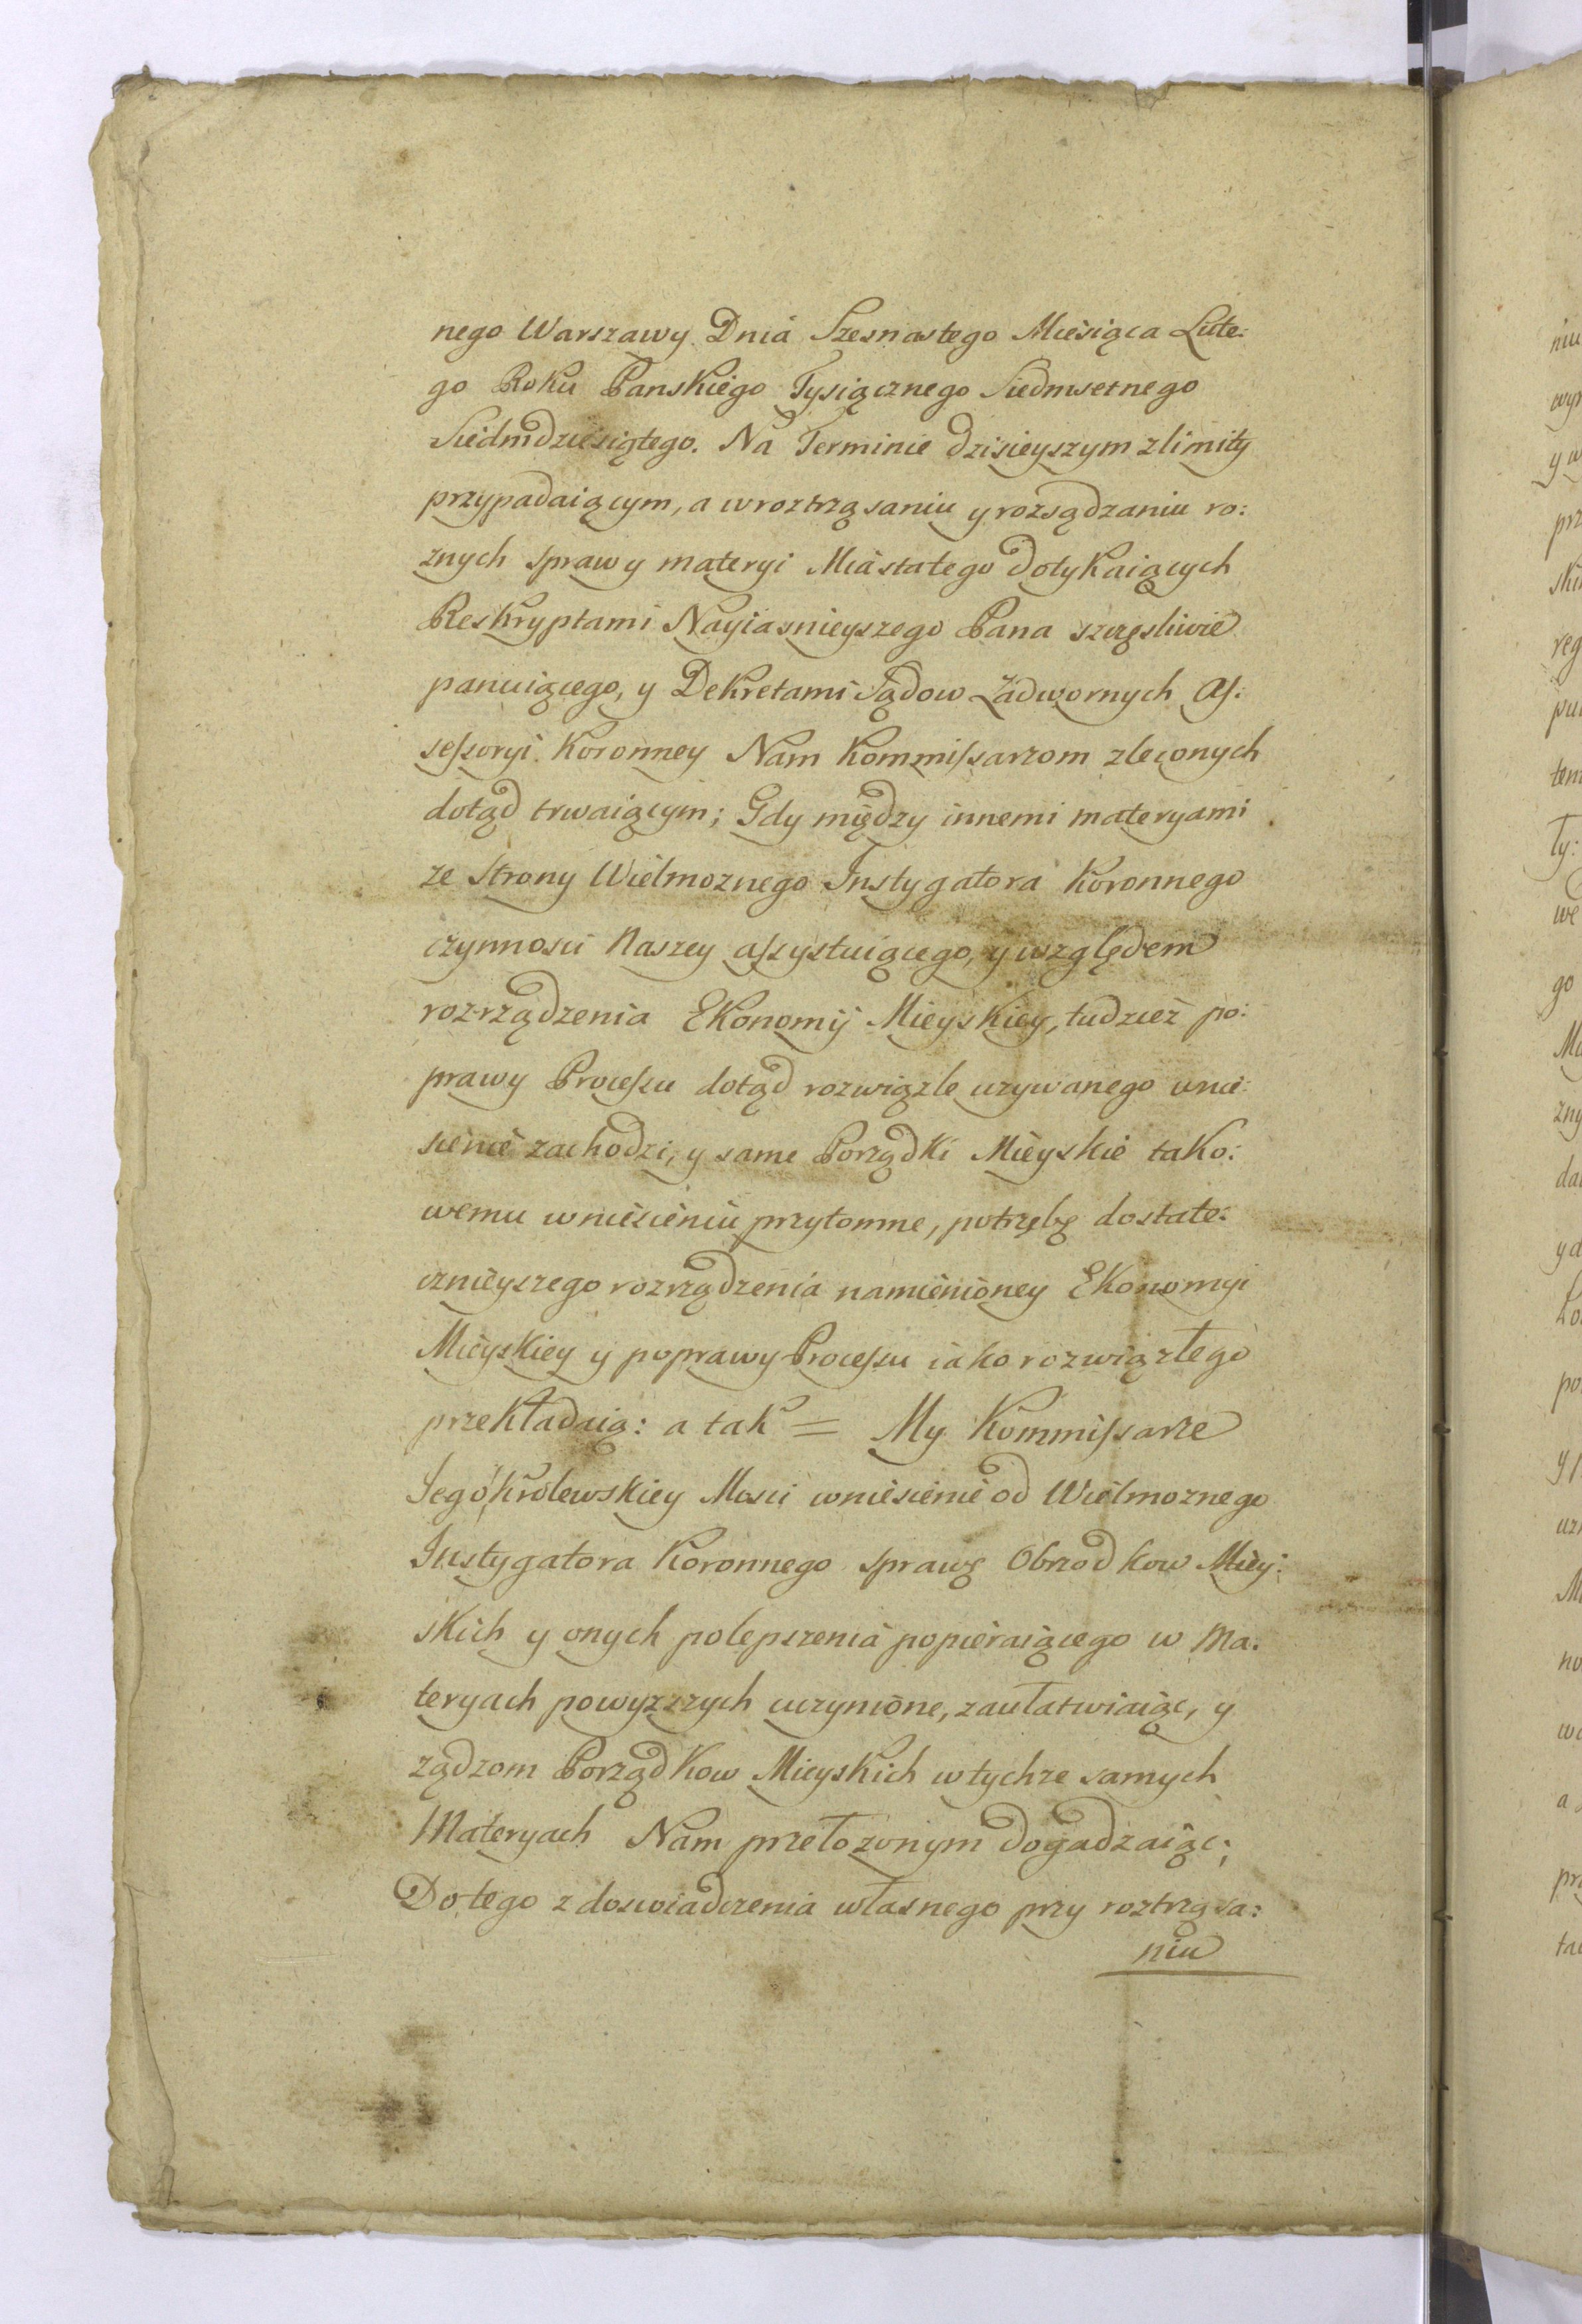 nego Warszawy Dnia Szesnastego Miesiąca Lute:
go Roku Panskiego Tysiącznego Siedmsetnego
Siedmdziesiątego. Na Terminie dzisieyszym z limity
przypadaiącym, a w roztrząsaniu y rozsądzaniu ro:
znych spraw y materyi Miasta tego dotykaiących
Reskryptami Nayiasnieyszego Pana szczęsliwie
panuiącego, y Dekretami Sądow Zadwornych As:
sessoryi Koronney Nam Kommissarzom zleconych
dotąd trwaiącym; Gdy między innemi materyami
ze strony Wielmoznego Instygatora Koronnego
czynnosci Naszey assystuiącego, y względem
rozrządzenia Ekonomij Mieyskiey, tudzież po:
prawy Processu dotąd rozwiązle uzywanego wnie:
sienie zachodzi, y same Porządki Mieyskie tako:
wemu wniesieniu przytomne, potrzebę dostate:
cznieyszego rozrządzenia namienioney Ekonomyi
Mieyskiey y poprawy Processu iako rozwiązłego
przekładaią: a tak = My Kommissarze
Jego Krolewskiey Mosci wniesienie od Wielmoznego
Instygatora Koronnego sprawę Obrzodkow Miey:
skich y onych polepszenia popieraiącego w Ma:
teryach powyzszych uczynione, zaułatwiaiąc, y
ządzom Porządkow Mieyskich w tychze samych
Materyach Nam przełozonym dogadzaiąc;
Do tego z doswiadczenia własnego przy roztrząsa:
niu